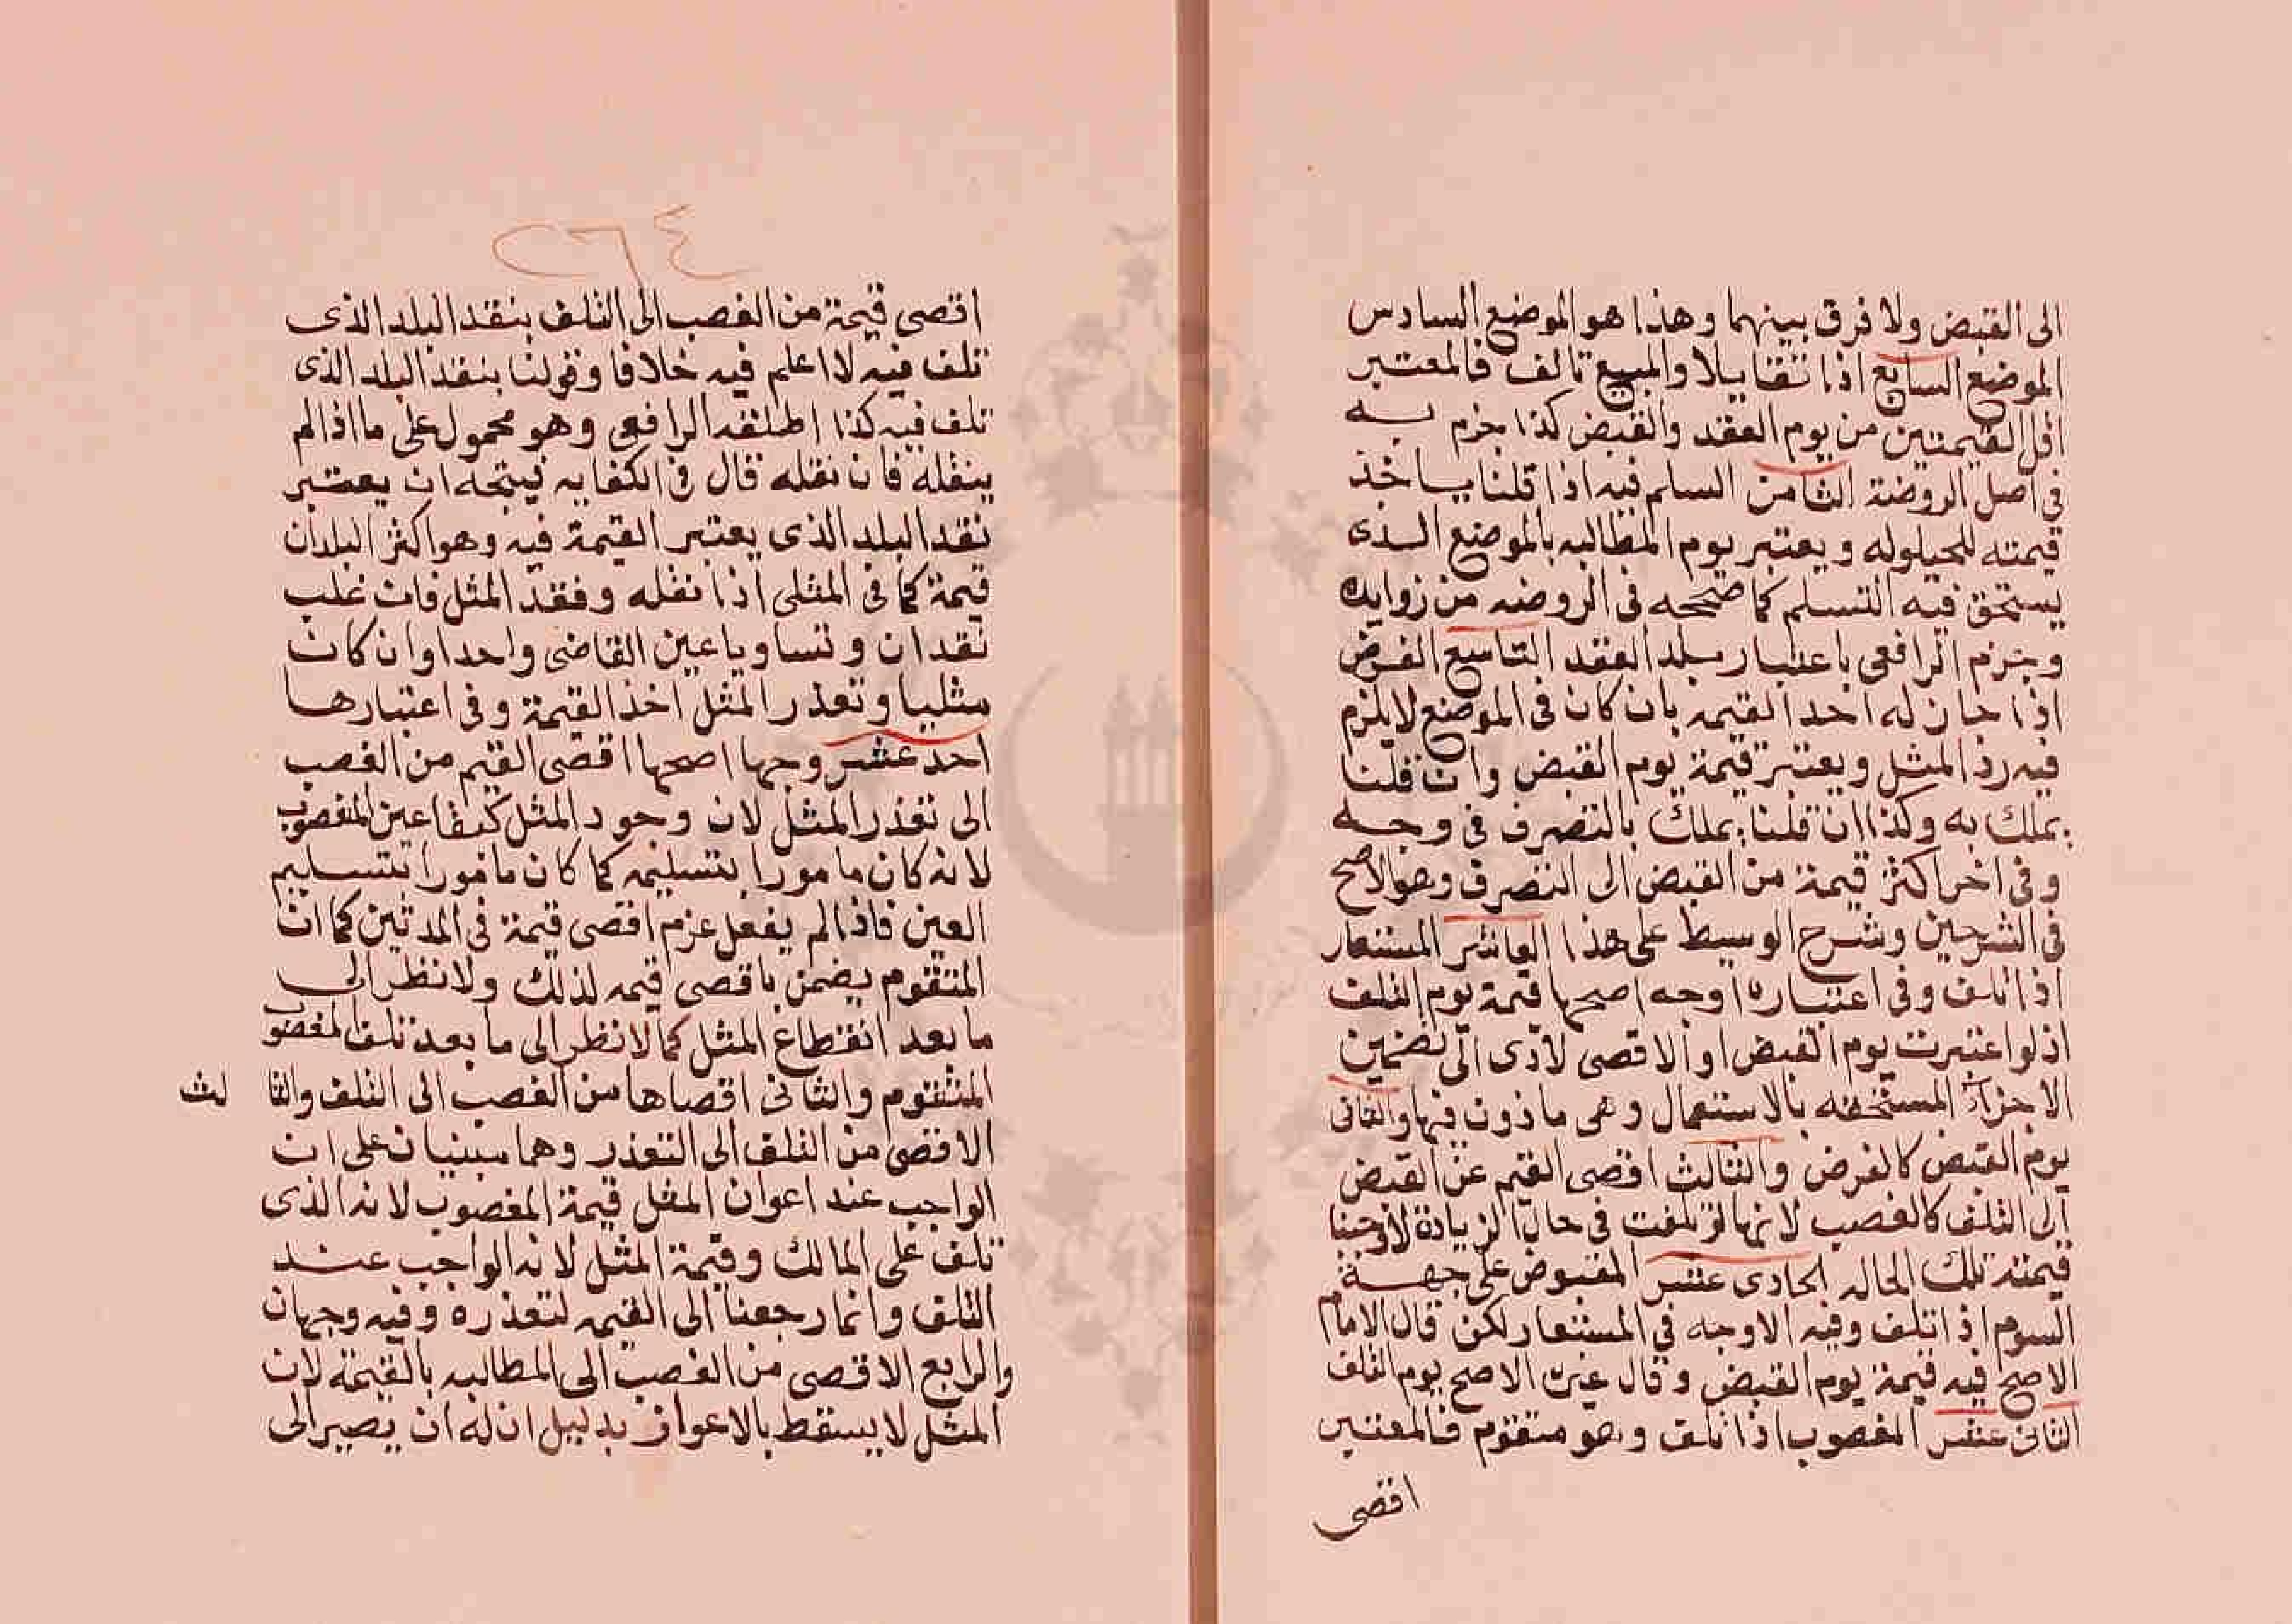 الى القبض ولا فرق بينهما وهذا هو الموضع السادس
الموضع السابع اذا تقايلا والمبيع تالف فالمعتبر
اقل القيمتين من يوم العقد والقبض كذا جزم به
فى اصل الروضة الثامن السلم فيه اذا قلنا ياخذ
قيمته للحيلوله ويعتبر يوم المطالبه بالموضع الذى
يستحق فيه التسلم كما صححه فى الروضه من زوايده
وجزم الرافعى باعتبار بلد العقد التاسع القرض
اذا جاز له اخذ القيمه بان كان فى الموضع لا يلزم
فيه رد المثل ويعتبر قيمة يوم القبض وان قلنا
يملك به وكذا ان قلنا يملك بالتصرف فى وجه
وفى اخر اكثر قيمة من القبض الى التصرف وهو الاصح
فى الشرحين وشرح الوسيط على هذا العاشر المستعار
اذا تلف وفى اعتباره اوجه اصحها قيمة يوم التلف
اذ لو اعتبرت يوم القبض او الاقصى لادى الى تضمين
الاجزاء المستحقه بالاستعمال وهى ماذون فيها والثانى
يوم القبض كالقرض والثالث اقصى القيم عن القبض
الى التلف كالغصب لانها لو تلفت فى حال الزيادة لاوجبنا
قيمته تلك الحاله الحادى عشر المقبوض على جهة
السوم اذا تلف وفيه الاوجه فى المستعار لكن قال الامام
الاصح فيه قيمة يوم القبض وقال غيره الاصح يوم التلف
الثانى عشر المغصوب اذا تلف وهو متقوم فالمعتبر
اقصى
٥٦٤
اقصى قيمة من الغصب الى التلف بنقد البلد الذى
تلف فيه لا اعلم فيه خلافا وقولنا بنقد البلد الذى
تلف فيه كذا اطلقه الرافعى وهو محمول على ما اذا لم
ينقله فان نقله قال فى الكفايه فيتجه ان يعتبر
نقد البلد الذى يعتبر القيمة فيه وهو اكثر البلدان
قيمة كما فى المثلى اذا نقله وفقد المثل فان غلب
نقدان وتساويا عين القاضى واحدا وان كان
مثليا وتعذر المثل اخذ القيمة وفى اعتبارها
احد عشر وجها اصحها اقصى القيم من الغصب
الى تعذر المثل لان وجود المثل كبقا عين المغصوب
لانه كان مامورا بتسليمه كما كان مامورا بتسليم
العين فاذا لم يفعل غرم اقصى قيمة فى المدتين كما ان
المتقوم يضمن باقصى قيمه لذلك ولا نظر الى
ما بعد انقطاع المثل كما لا نظر الى ما بعد تلف المغصوب
المتقوم والثانى اقصاها من الغصب الى التلف والثا لث
الاقصى من التلف الى التعذر وهما مبنيان على ان
الواجب عند اعواز المثل قيمة المغصوب لانه الذى
تلف على المالك وقيمة المثل لانه الواجب عند
التلف وانما رجعنا الى القيمه لتعذره وفيه وجهان
والرابع الاقصى من الغصب الى المطالبه بالقيمة لان
المثل لا يسقط بالاعواز بدليل ان له ان يصير الى